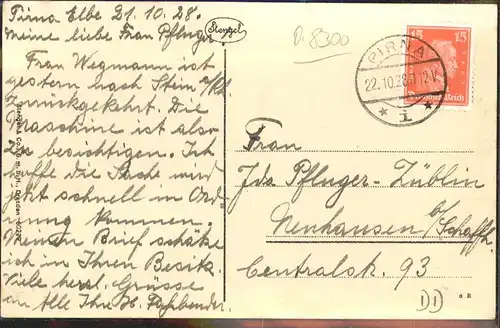 Pirna Elbe 21.10.28.
Meine liebe Frau Pfluger
Frau Wegmann ist
gestern nach Stein a/Rh.
zurückgekehrt. Die
Maschine ist also
zu besichtigen. Ich
hoffe die Sache wird
jetzt schnell in Ord-
nung kommen.
Meinen Brief schätze
ich in Ihren Besitz.
Viele herzl. Grüsse
an alle Ihre
Stengel
8300
PIRNA
22.10.28
* i *
15 15
Deutsches Reich
Frau
Ida Pfluger-Züblin
Neuhausen b/Schaffh.
Centralstr. 93
Stengel & Co., G.m.b.H., Dresden